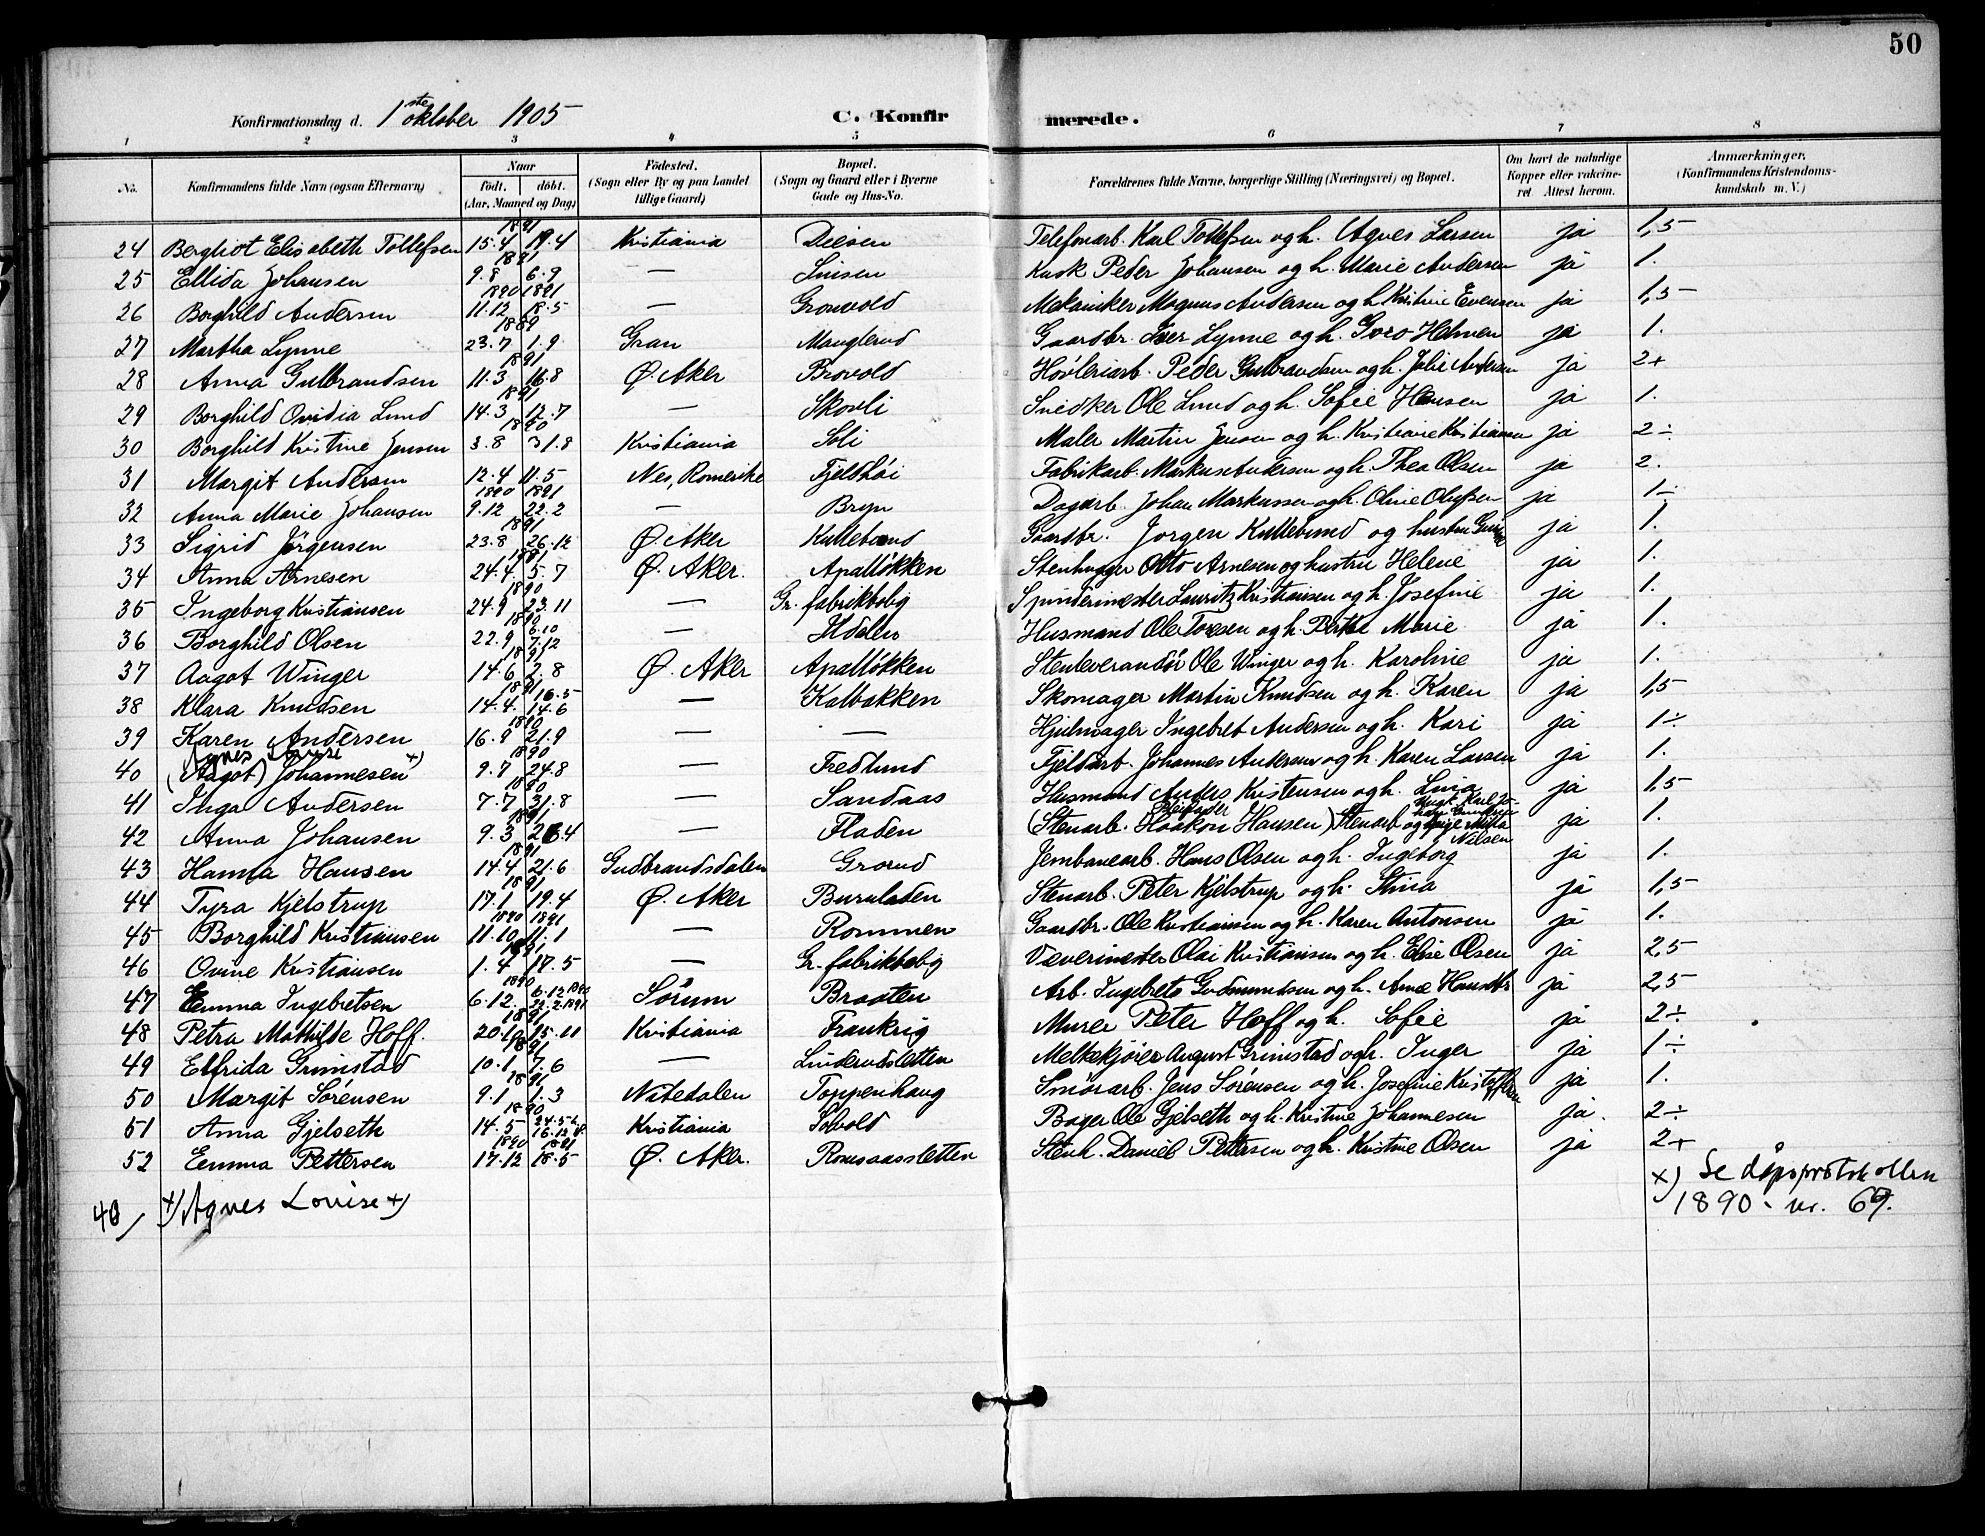 50
Konfirmationsdag d. 1ste oktober 1905
C. Konfirmerede.
1 2 3 4 5 6 7 8
No. Konfirmandens fulde Navn (ogsaa Efternavn) Naar født. døbt. (Aar, Maaned og Dag) Fødested. (Sogn eller By og paa Landet tillige Gaard) Bopæl. (Sogn og Gaard eller i Byerne Gade og Hus-No. Forældrenes fulde Navne, borgerlige Stilling (Næringsvei) og Bopæl. Om havt de naturlige Kopper eller vakcineret. Attest herom. Anmærkninger. (Konfirmandens Kristendomskundskab m. V.)
24 Bergliot Elisabeth Tollefsen 1891 15.4 19.4 Kristiania Diesen Telefonarb. Karl Tollefsen og h. Agnes Larsen ja 1,5
25 Ellida Johansen 1891 9.8 6.9 — Sinsen Kusk Peder Johansen og h. Marie Andersen ja 1.
26 Borghild Andersen 1890 1891 11.12 18.5 — Gronvold Mekaniker Magnus Andersen og h Kristine Evensen ja 1,5
27 Martha Lynne 1889 23.7 1.9 Gran Manglerud Gaardbr. Iver Lynne og h. Goro Helmen ja 1.
28 Anna Gulbrandsen 1891 11.3 16.8 Ø. Aker Brovold Høvleriarb. Peder Gulbrandsen og h. Julie Andersen ja 2+
29 Borghild Ovidia Lund 1891 14.3 12.7 — Skovli Snedker Ole Lund og h. Sofie Hansen ja 1.
30 Borghild Kristine Jensen 1890 3.8 31.8 Kristiania Soli Maler Martin Jensen og h. Kristiane Kristiansen ja 2÷
31 Margit Andersen 12.4 11.5 Nes, Romerike Fjeldhøi Fabrikarb. Markus Andersen og h. Thea Olsen ja 2.
32 Anna Marie Johansen 1890 1891 9.12 22.2 — Bryn Dagarb. Johan Markussen og h. Oline Olufsen ja 1÷
33 Sigrid Jørgensen 1891 23.8 26.12 Ø. Aker Kullebund Gaardbr. Jorgen Kullebund og hustru ja 1.
34 Anna Arnesen 1891 24.4 5.7 Ø. Aker. Apalløkken Stenhugger Otto Arnesen og hustru Helene ja 1.
35 Ingeborg Kristiansen 1890 24.9 23.11 — Gr. fabrikbolig Spinderimester Lauritz Kristiansen og h. Josefine ja 1.
36 Borghild Olsen 1890 22.9 6.10 7.12 — Hdalen Husmand Ole Toresen og h. Berthe Marie ja 1.
37 Aagot Winger 1891 14.6 2.8 Ø. Aker Apalløkken Stenleverandør Ole Winger og h. Karoline ja 1.
38 Klara Knudsen 1891 14.4. 16.5 14.6 — Kalbakken Skomager Martin Knudsen og h. Karen ja 1,5
39 Karen Andersen 1890 16.9 21.9 — — Hjulmager Ingebret Andersen og h. Kari ja 1÷
40 Agnes Lovise (Aagot) Johannesen x) 1890 9.7 24.8 — Fredlund Fjeldarb. Johannes Andersen og h. Karen Larsen ja 1.
41 Inga Andersen 1890 7.7 31.8 — Sandaas Husmand Anders Kristensen og h. Lina ja 1,5
42 Anna Johansen 1891 9.3 26.4 — Fladen (Stenarb. Haakon Hansen) Stenarb og Nilsen ja 1.
43 Hanna Hansen 1891 14.4 21.6 Gudbrandsdalen Grorud Jernbanearb. Hans Olsen og h. Ingeborg ja 1.
44 Tyra Kjelstrup 1891 17.1 19.4 Ø. Aker Buruladen Stenarb. Peter Kjelstrup og h. Stina ja 1,5
45 Borghild Kristiansen 1890 1891 11.10 11.1 — Rommen Gaardbr. Ole Kristiansen og h. Karen Antonsen ja 1.
46 Ovine Kristiansen 1891 1.4 17.5 — Gr. fabrikbolig Væverimester Olai Kristiansen og h. Elise Olsen ja 2,5
47 Emma Ingebretsen 1890 6.12. 6.12 1890 22.2.1891 Sørum Braaten Arb. Ingebret Gudmundsen og h. Anne ja 2,5
48 Petra Mathilde Hoff. 1891 20.10 15.11 Kristiania Frankrig Murer Peter Hoff og h. Sofie ja 2÷
49 Elfrida Grimstad 1891 10.1 7.6 — Linderudsletten Melkekjører August Grimstad og h. Inger ja 1÷
50 Margit Sørensen 1891 9.1 1.3 Nitedalen Toppenhaug Smørarb. Jens Sørensen og h. Josefine Kristoffersen ja 1.
51 Anna Gjelseth 1890 14.5 24.5 16.12 Kristiania Solvold Bager Ole Gjelseth og h. Kristine Johannesen ja. 2÷
52 Emma Pettersen 1890 1891 17.12 18.5 Ø. Aker. Romsaassletten Stenh. Daniel Pettersen og h. Kristine Olsen ja 2+
40/ x) Agnes Lovise x)
x) Se dåpsprotokollen
1890 - nr. 69.